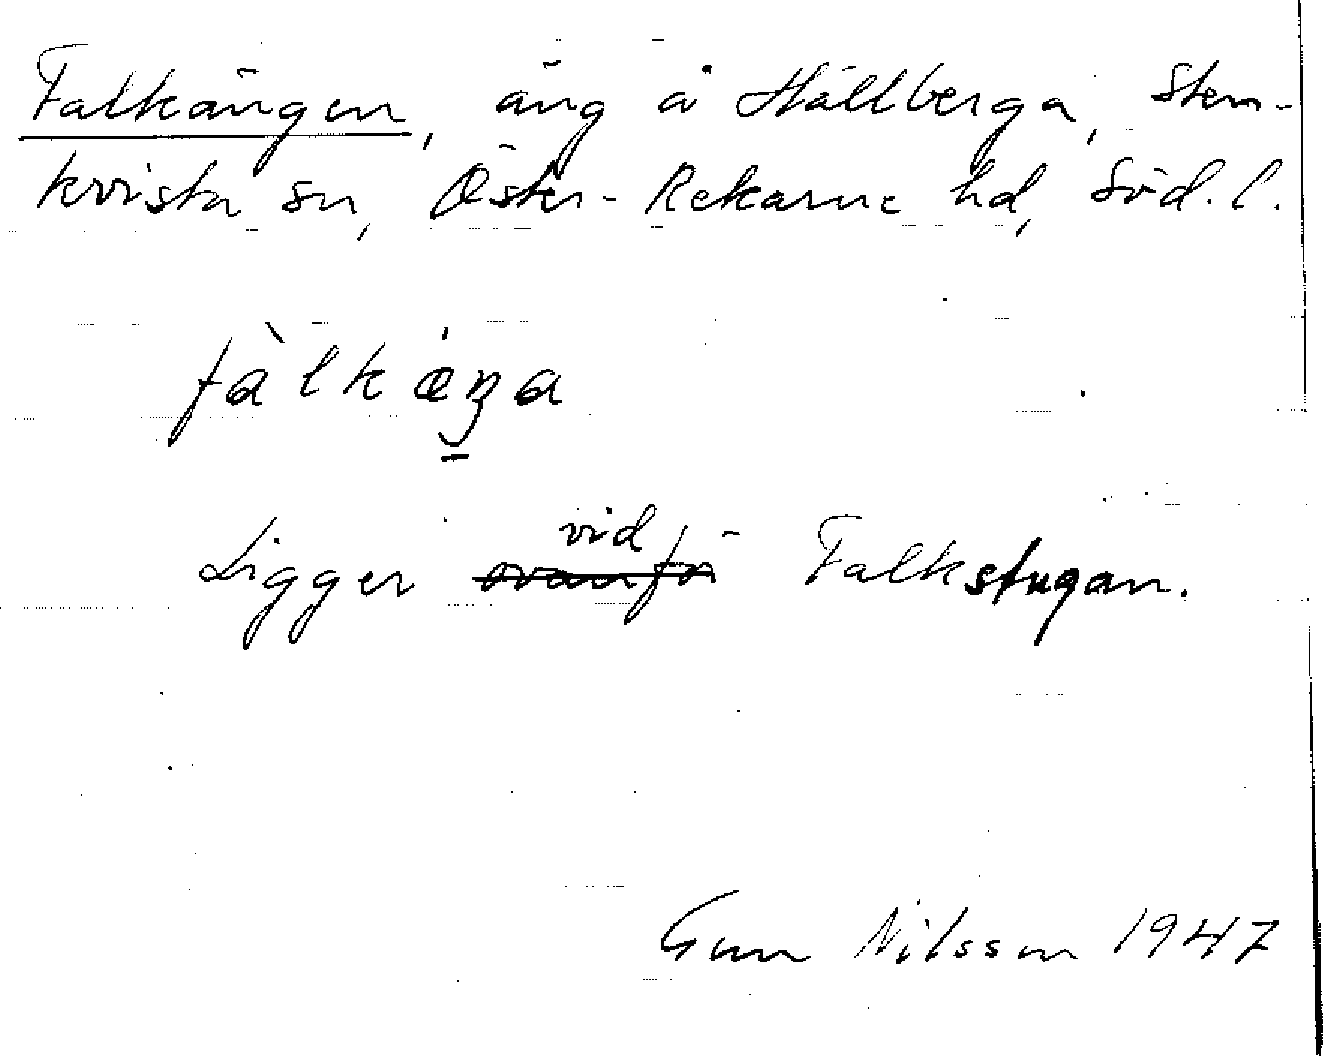 Falkängen, äng å Hällberga, Sten-
kvista sn, Öster-Rekarne hd, Söd. l.
fàlkǽŋa
Ligger vid Falkstugan.
Gun Nilsson 1947